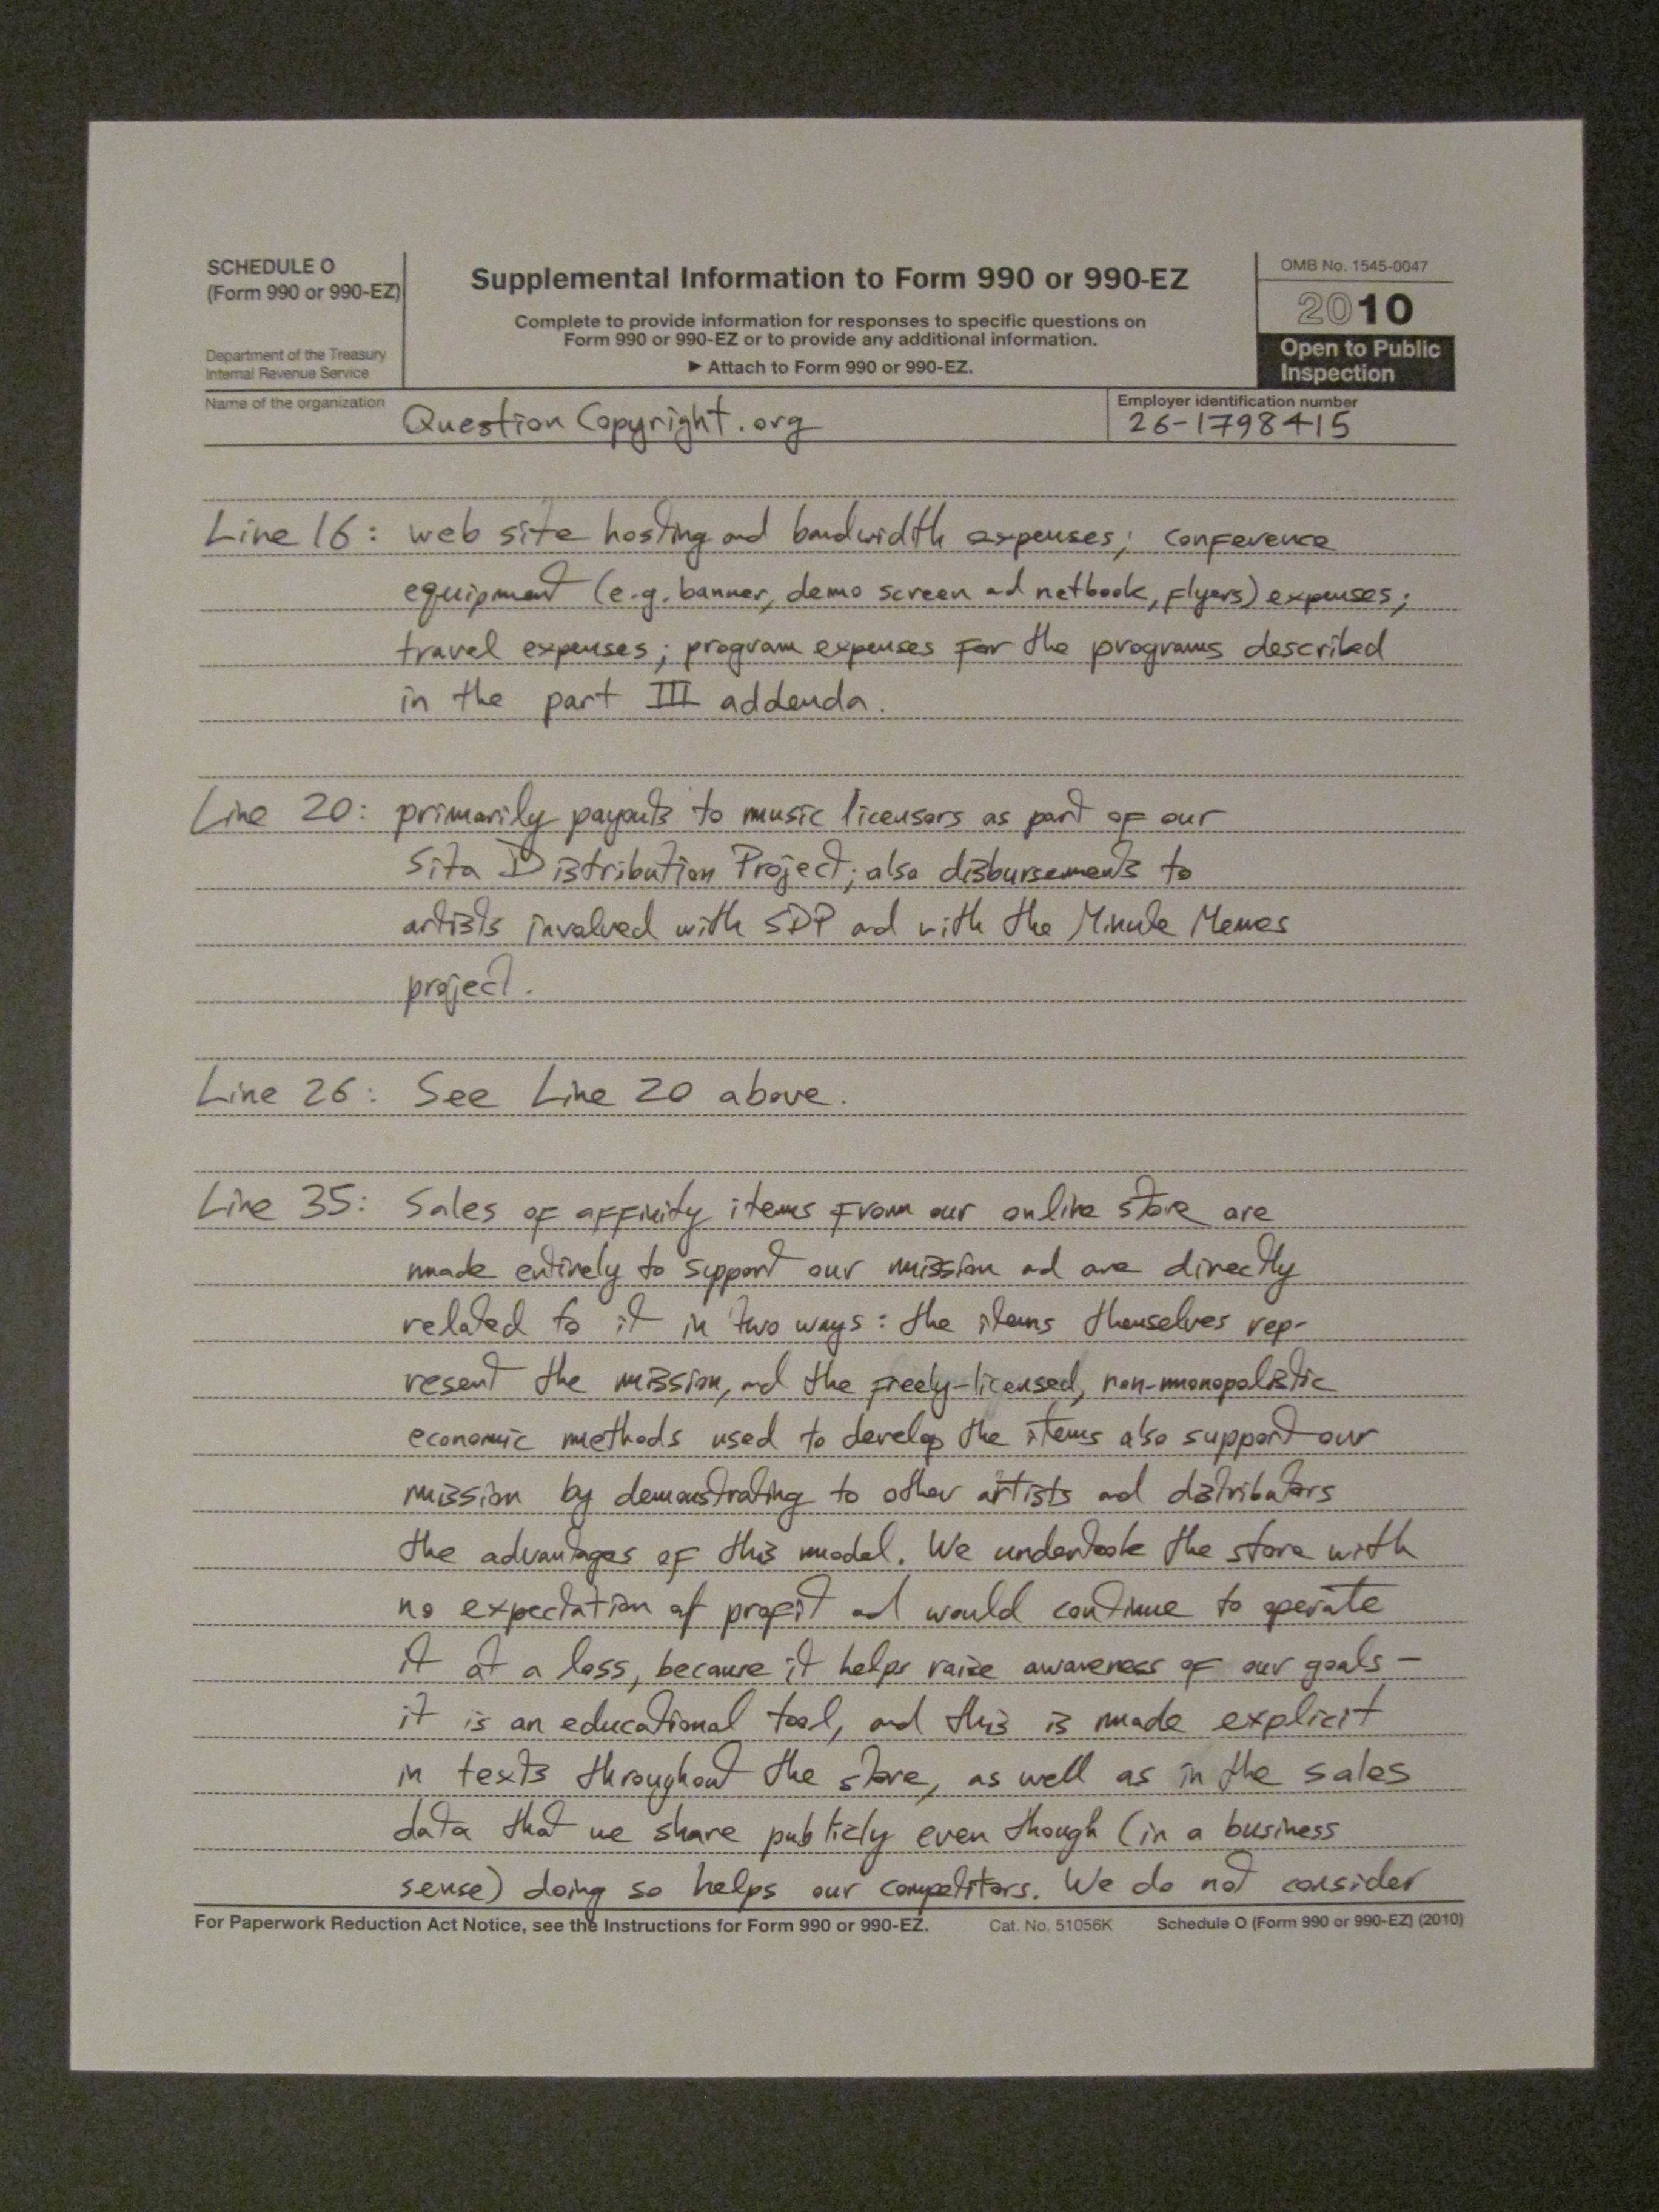 SCHEDULE O
(Form 990 or 990-EZ)
Department of the Treasury
Internal Revenue Service
Supplemental Information to Form 990 or 990-EZ
Complete to provide information for responses to specific questions on
Form 990 or 990-EZ or to provide any additional information.
▶ Attach to Form 990 or 990-EZ.
OMB No. 1545-0047
2010
Open to Public
Inspection
Name of the organization
Question Copyright.org
Employer identification number
26-1798415
Line 16: web site hosting and bandwidth expenses; conference
equipment (e.g. banner, demo screen and netbook, flyers) expenses;
travel expenses; program expenses for the programs described
in the part III addenda.
Line 20: primarily payouts to music licensors as part of our
Sita Distribution Project; also disbursements to
artists involved with SDP and with the Minute Memes
project.
Line 26: See Line 20 above.
Line 35: Sales of affinity items from our online store are
made entirely to support our mission and are directly
related to it in two ways: the items themselves rep-
resent the mission, and the freely-licensed, non-monopolistic
economic methods used to develop the items also support our
mission by demonstrating to other artists and distributors
the advantages of this model. We undertook the store with
no expectation of profit and would continue to operate
it at a loss, because it helps raise awareness of our goals —
it is an educational tool, and this is made explicit
in texts throughout the store, as well as in the sales
data that we share publicly even though (in a business
sense) doing so helps our competitors. We do not consider
For Paperwork Reduction Act Notice, see the Instructions for Form 990 or 990-EZ.
Cat. No. 51056K
Schedule O (Form 990 or 990-EZ) (2010)